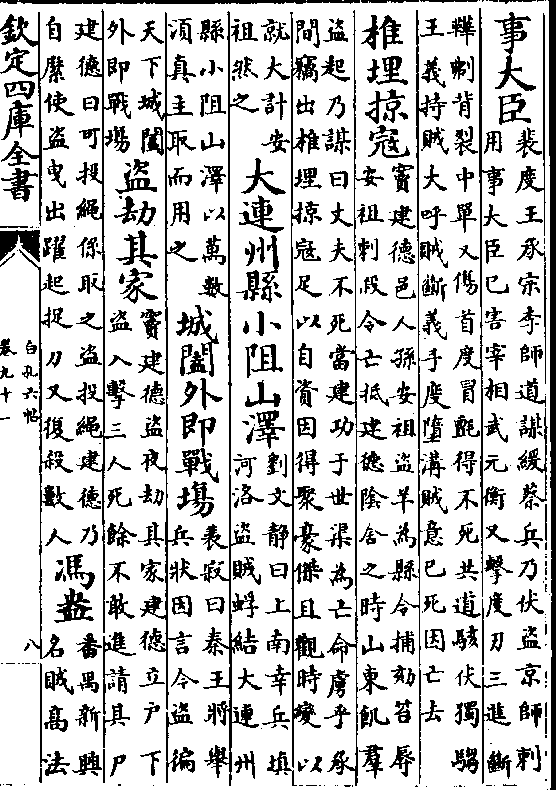 事大臣
裴度王承宗李師道謀緩蔡兵乃伏盜京師刺
用事大臣已害宰相武元衡又擊度刃三進斷
鞾刜背裂中單又傷首度冒氊得不死共道駭伏獨騶
王義持賊大呼賊斷義手度墮溝賊意已死因亡去
椎埋掠寇
竇建德邑人孫安祖盜羊為縣令捕劾笞辱
安祖刺殺令亡抵建德陰舍之時山東飢羣
盜起乃謀曰丈夫不死當建功于世渠為亡命虜乎承
間竊出椎埋掠寇足以自資因得聚豪傑且觀時變以
就大計安
祖然之
大連州縣小阻山澤
劉文静曰上南幸兵填
河洛盜賊蜉結大連州
縣小阻山澤以萬數
須真主取而用之
城闔外即戰場
裴寂曰秦王將舉
兵狀因言今盜徧
天下城闔
外即戰場
盜劫其家
竇建德盜夜劫其家建德立户下
盜入擊三人死餘不敢進請其尸
建德曰可投繩係取之盜投繩建德乃
自縻使盜曳出躍起捉刀又復殺數人
馮盎
番禺新興
名賊高法
欽定四庫全書
白孔六帖
卷九十一
八